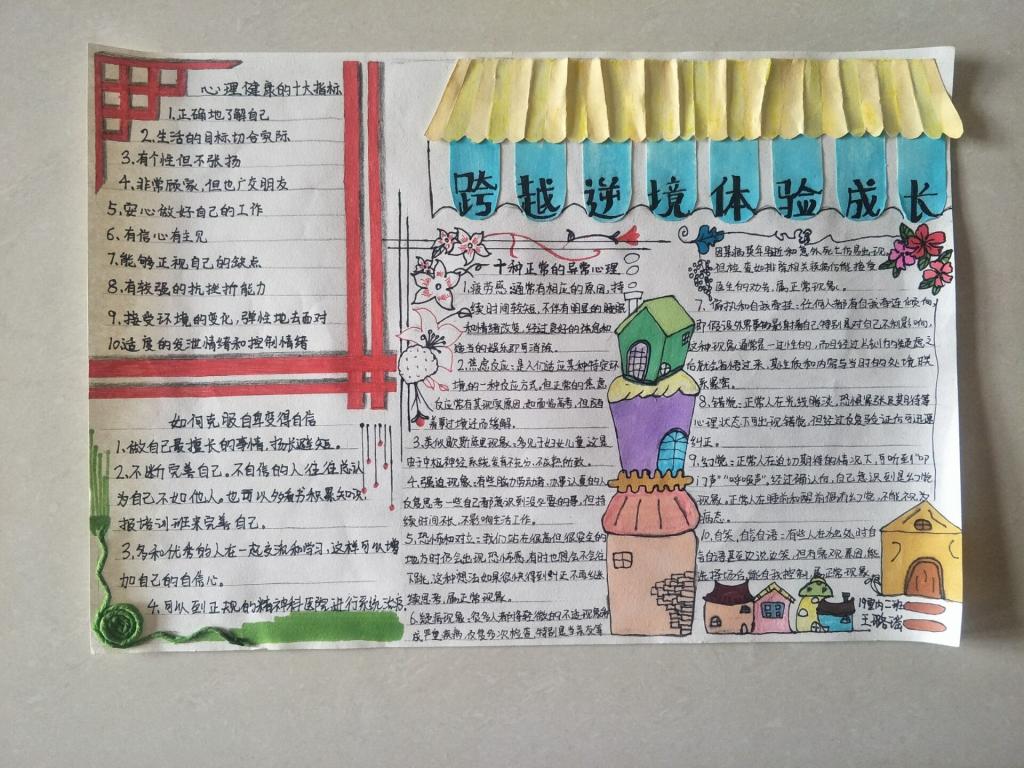 心理健康的十大指标
1.正确地了解自己
2.生活的目标切合实际
3.有个性但不张扬
4.非常顾家,但也广交朋友
5.安心做好自己的工作
6.有信心有主见
7.能够正视自己的缺点
8.有较强的抗挫折能力
9.接受环境的变化,弹性地去面对
10.适度的发泄情绪和控制情绪
如何克服自卑变得自信
1.做自己最擅长的事情,扬长避短。
2.不断完善自己。不自信的人往往总认
为自己不如他人。也可以多看书积累知识
报培训班来完善自己。
3.多和优秀的人在一起交流和学习,这样可以增
加自己的自信心。
4.可以到正规的精神科医院进行系统治疗
跨越逆境体验成长
十种正常的异常心理
1.疲劳感:通常有相应的原因,持
续时间较短,不伴有明显的睡眠
和情绪改变,经过良好的休息和
适当的娱乐即可消除。
2.焦虑反应:是人们适应某种特定环
境的一种反应方式,但正常的焦虑
反应常有其现实原因,如面临高考,但随
着事过境迁而缓解。
3.类似歇斯底里现象:多见于妇女儿童这是
由于中枢神经系统发育不充分,不成熟所致。
4.强迫现象:有些脑力劳动者,办事认真的人
反复思考一些自己都意识到没必要的事,但持
续时间不长,不影响生活工作。
5.恐怖和对立:我们站在很高但很安全的
地方时仍会出现恐怖感,有时也想会不会往
下跳,这种想法如果很快得到纠正不再继
续思考,属正常现象。
6.疑病现象:很多人都将轻微的不适现象看
成严重疾病,反复多次检查,特别是当亲友等
因某病英年早逝和意外死亡后易出现,
但检查如排除相关疾病后能接受
医生的劝告,属正常现象。
7.偏执和自我牵挂:任何人都有自我牵连倾向,
即假设外界事物影射着自己特别是对自己不利影响,
这种现象通常是一过性的,而且经过片刻的疑虑之
后就会省悟过来,其性质和内容与当时的处境联
系紧密。
8.错觉:正常人在光线暗淡,恐惧紧张及期待等
心理状态下可出现错觉,但经过反复验证后可迅速
纠正。
9.幻觉:正常人在迫切期待的情况下,可听到“叩
门声”“呼唤声”。经过确认后,自己意识到是幻觉
现象,正常人在睡前和醒前偶有幻觉,不能视为
病态。
10.自笑,自言自语:有些人在独处时自
言自语甚至边说边笑,但有客观原因,能
选择场合,能自我控制,属正常现象。